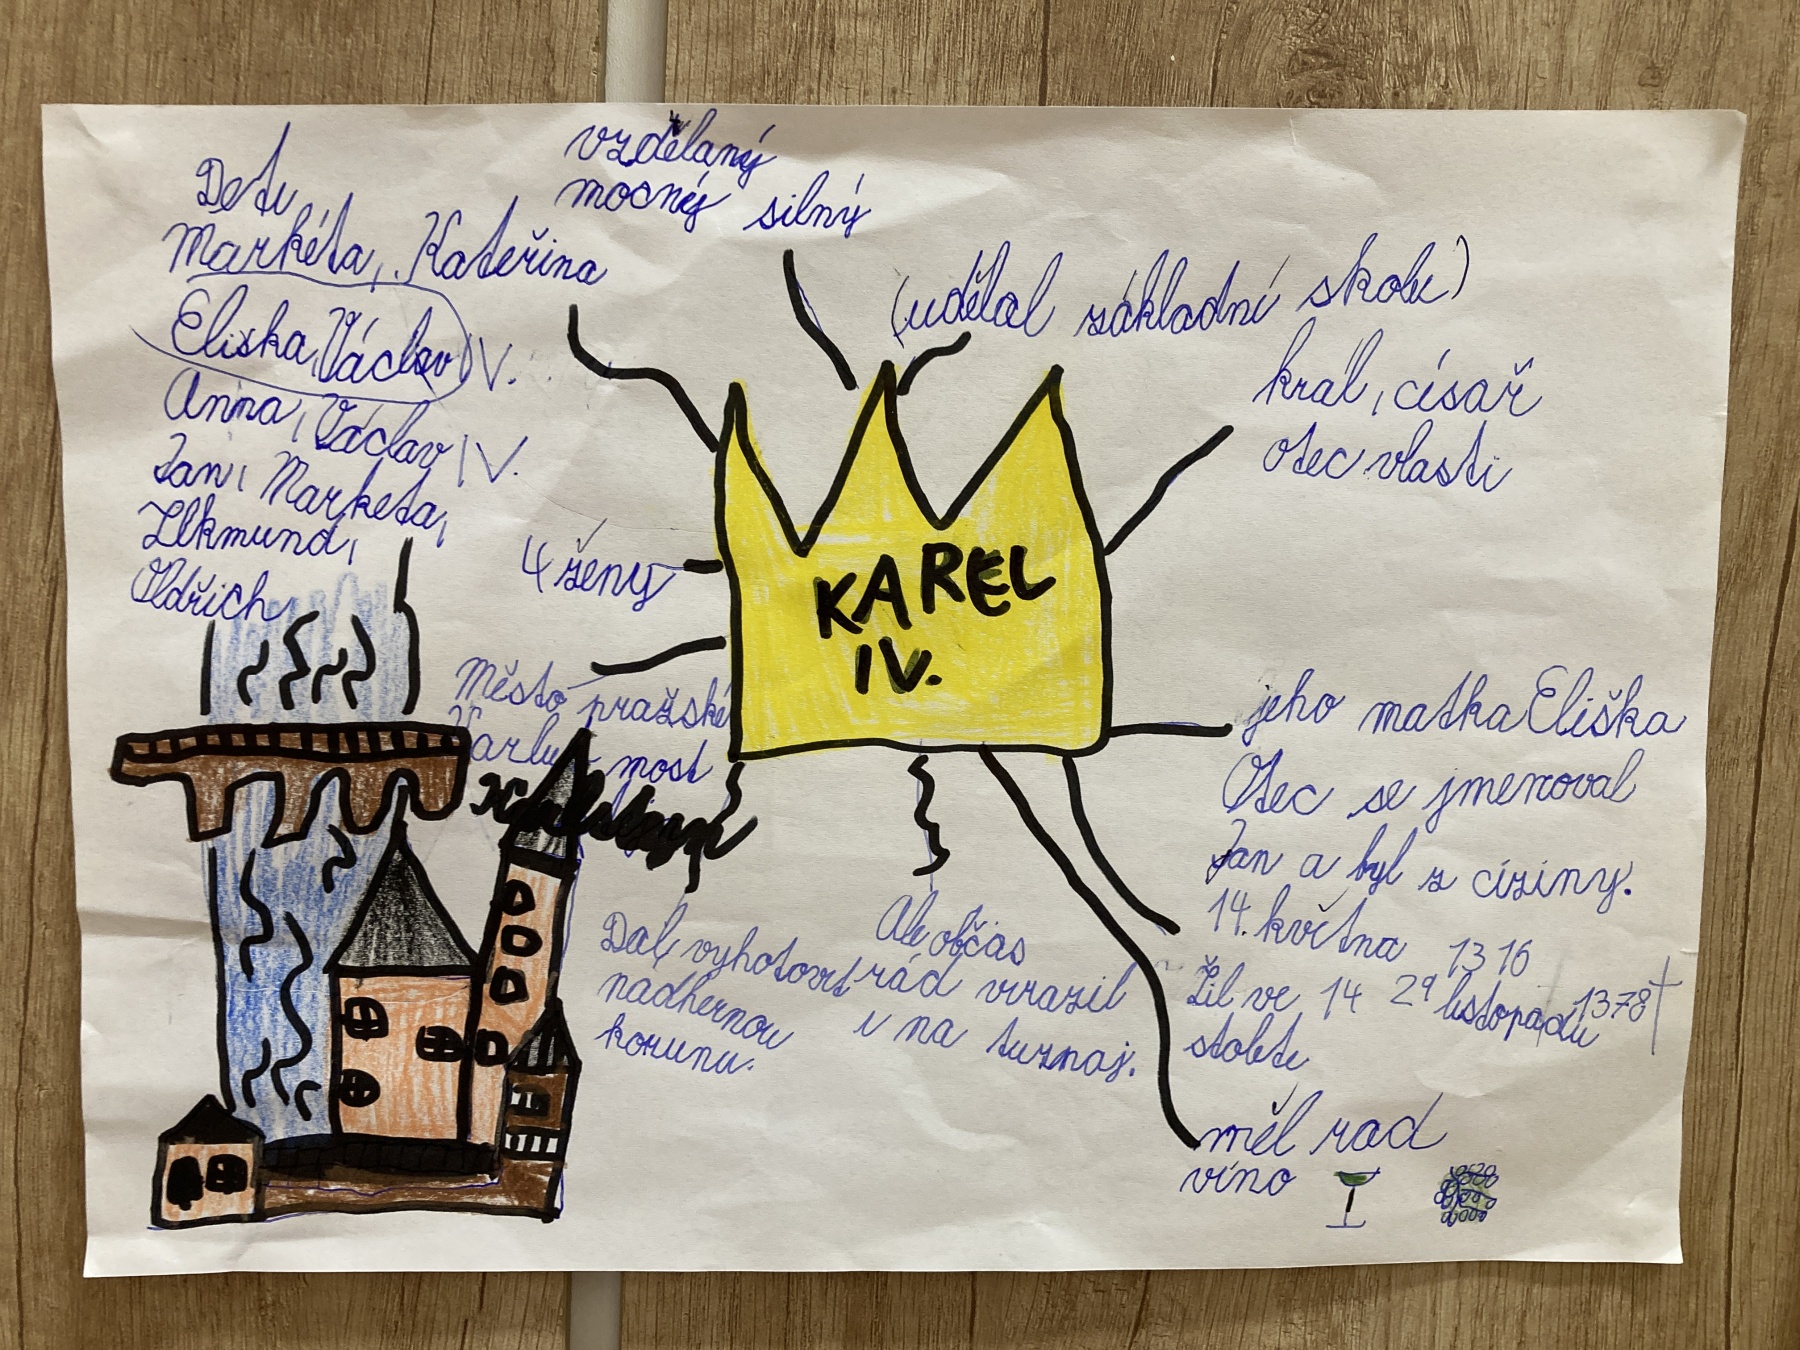 Deti
Markéta, Kateřina
Eliška, Václav IV.
Anna, Václav IV.
Jan, Marketa,
Zikmund,
Oldřich
vzdělaný
mocný silný
(udělal základní skolu)
král, císař
otec vlasti
4 ženy
KAREL
IV.
Město pražské
Karluv most
Karlštejn
jeho matka Eliška
Otec se jmenoval
Jan a byl z ciziny.
14. května 1316
29 listopadu 1378 †
Žil ve 14
stoleti
Dal vyhotovit
nadhernou
korunu.
Ale občas
rád vyrazil
i na turnaj.
měl rad
víno